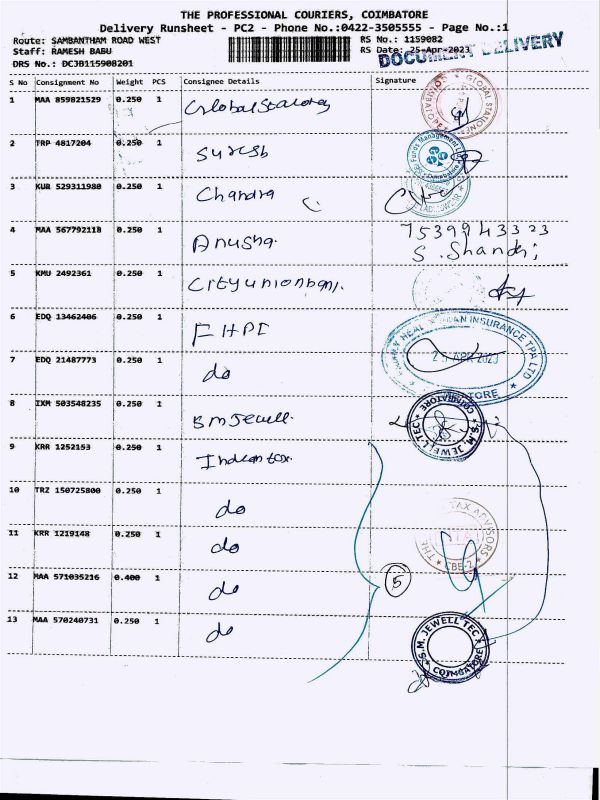 THE PROFESSIONAL COURIERS, COIMBATORE
Delivery Runsheet - PC2 - Phone No.:0422-3505555 - Page No.:1
Route: SAMBANTHAM ROAD WEST RS No.: 1159082
Staff: RAMESH BABU RS Date: 25-Apr-2023
DOCUMENT DELIVERY
DRS No.: DCJB115908201
S No Consignment No Weight PCS Consignee Details Signature
1 MAA 859821529 0.250 1
GLOBAL STATIONE
2 TRP 4817204 0.250 1 Suresh
Funds Management
3 KUR 529311980 0.250 1 Chandra
4 MAA 567792118 0.250 1 Anusha. 7539943323
S. Shandi
5 KMU 2492361 0.250 1 Cityunionbank.
6 EDQ 13462406 0.250 1 FHPL
7 EDQ 21487773 0.250 1 do
HEAL INSURANCE TPA LTD
25 APR 2023
8 IXM 503548235 0.250 1 BM Jewell.
S.M. JEWELL TEC
COIMBATORE
9 KRR 1252153 0.250 1 Indian tax.
10 TRZ 150725800 0.250 1 do
THE TAX ADVISORS
CBE-2
11 KRR 1219148 0.250 1 do
12 MAA 571035216 0.400 1 do 5
13 MAA 570240731 0.250 1 do
S.M. JEWELL TEC
COIMBATORE